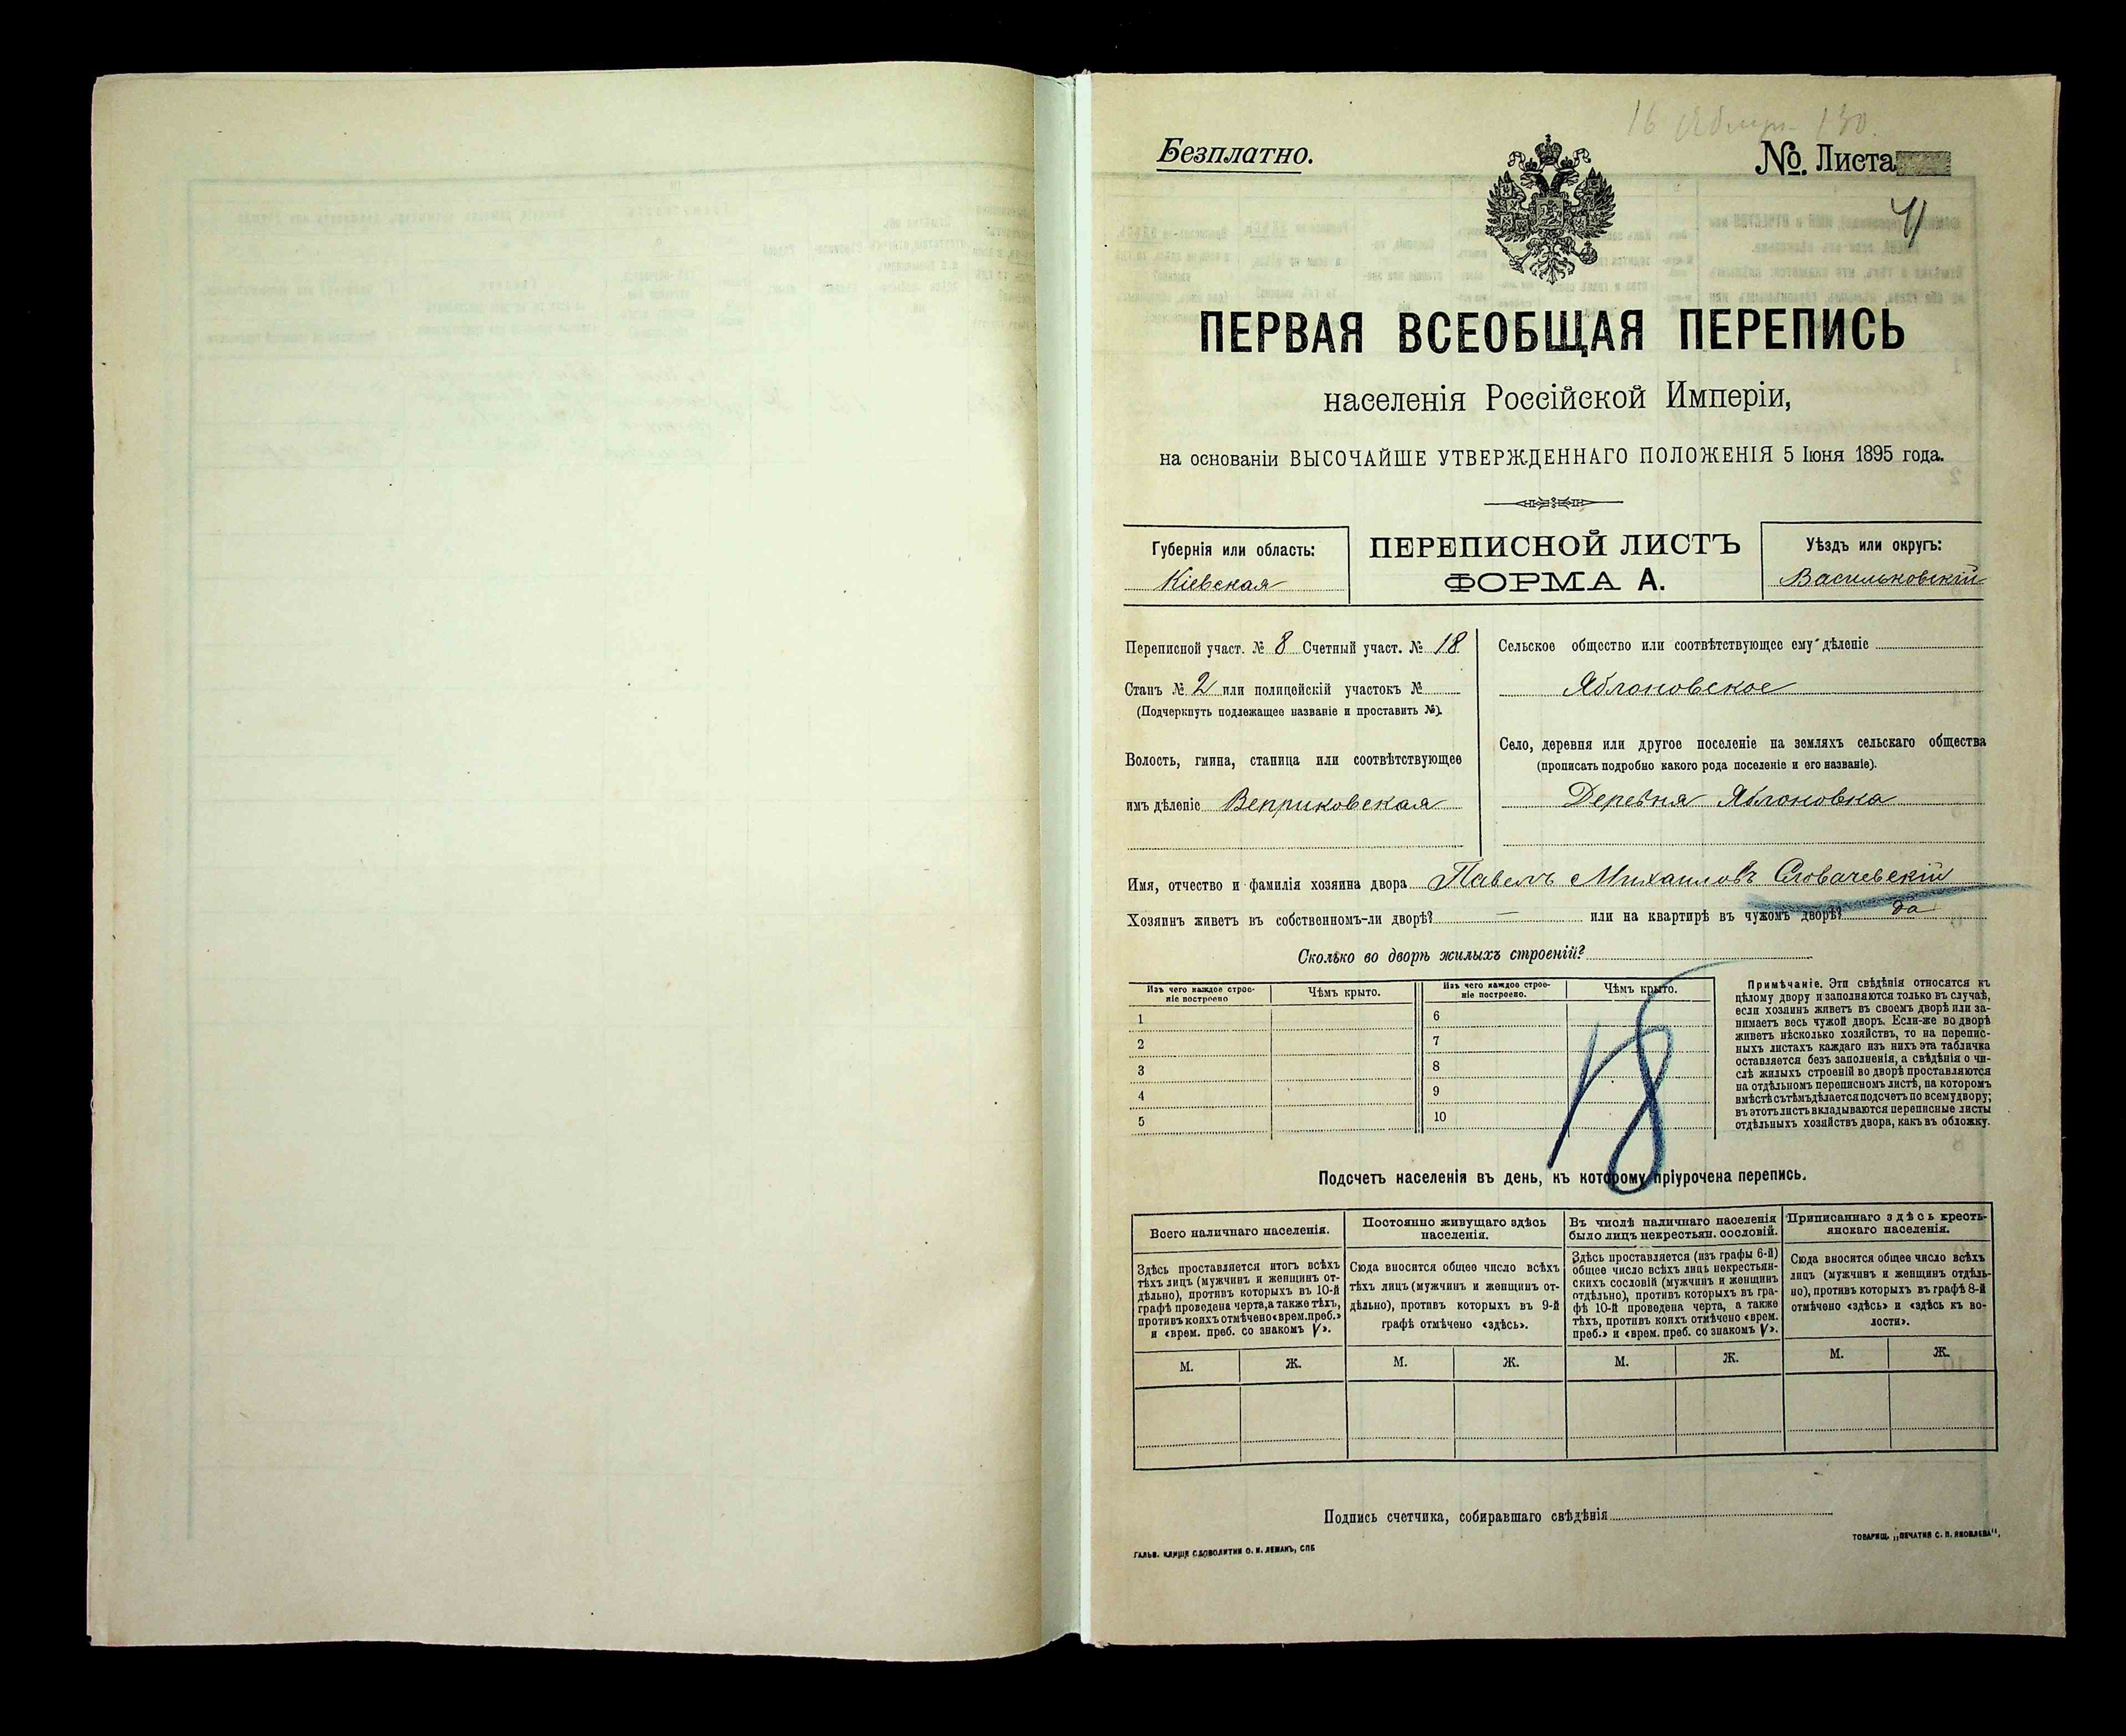 Безплатно.
№. Листа
ПЕРВАЯ ВСЕОБЩАЯ ПЕРЕПИСЬ
населенія Россійской Имперіи,
на основаніи ВЫСОЧАЙШЕ УТВЕРЖДЕННАГО ПОЛОЖЕНІЯ 5 Іюня 1895 года.
Губернія или область:
Кіевская
ПЕРЕПИСНОЙ ЛИСТЪ
ФОРМА А.
Уѣздъ или округъ:
Васильковскій
Переписной участ. № 8 Счетный участ. № 18
Станъ № 2 или полицейскій участокъ №
(Подчеркнуть подлежащее названіе и проставить №).
Волость, гмина, станица или соотвѣтствующее
имъ дѣленіе Веприковская
Сельское общество или соотвѣтствующее ему дѣленіе
Яблоновское
Село, деревня или другое поселеніе на земляхъ сельскаго общества
(прописать подробно какого рода поселеніе и его названіе).
Деревня Яблоновка
Имя, отчество и фамилія хозяина двора Павелъ Михаиловъ Словачевскій
Хозяинъ живетъ въ собственномъ-ли дворѣ? — или на квартирѣ въ чужомъ дворѣ? да
Сколько во дворѣ жилыхъ строеній?
Изъ чего каждое строе-
ніе построено
Чѣмъ крыто.
1
2
3
4
5
Изъ чего каждое строе-
ніе построено.
Чѣмъ крыто.
6
7
8
9
10
18
Примѣчаніе. Эти свѣдѣнія относятся къ
цѣлому двору и заполняются только въ случаѣ,
если хозяинъ живетъ въ своемъ дворѣ или за-
нимаетъ весь чужой дворъ. Если-же во дворѣ
живетъ нѣсколько хозяйствъ, то на перепис-
ныхъ листахъ каждаго изъ нихъ эта табличка
оставляется безъ заполненія, а свѣдѣнія о чи-
слѣ жилыхъ строеній во дворѣ проставляются
на отдѣльномъ переписномъ листѣ, на которомъ
вмѣстѣ съ тѣмъ дѣлается подсчетъ по всему двору;
въ этотъ листъ вкладываются переписные листы
отдѣльныхъ хозяйствъ двора, какъ въ обложку.
Подсчетъ населенія въ день, къ которому пріурочена перепись.
Всего наличнаго населенія.
Здѣсь проставляется итогъ всѣхъ
тѣхъ лицъ (мужчинъ и женщинъ от-
дѣльно), противъ которыхъ въ 10-й
графѣ проведена черта, а также тѣхъ,
противъ коихъ отмѣчено «врем. преб.»
и «врем. преб. со знакомъ V».
М. Ж.
Постоянно живущаго здѣсь
населенія.
Сюда вносится общее число всѣхъ
тѣхъ лицъ (мужчинъ и женщинъ от-
дѣльно), противъ которыхъ въ 9-й
графѣ отмѣчено «здѣсь».
М. Ж.
Въ числѣ наличнаго населенія
было лицъ некрестьян. сословій.
Здѣсь проставляется (изъ графы 6-й)
общее число всѣхъ лицъ некрестьян-
скихъ сословій (мужчинъ и женщинъ
отдѣльно), противъ которыхъ въ гра-
фѣ 10-й проведена черта, а также
тѣхъ, противъ коихъ отмѣчено «врем.
преб.» и «врем. преб. со знакомъ V».
М. Ж.
Приписаннаго здѣсь кресть-
янскаго населенія.
Сюда вносится общее число всѣхъ
лицъ (мужчинъ и женщинъ отдѣль-
но), противъ которыхъ въ графѣ 8-й
отмѣчено «здѣсь» и «здѣсь къ во-
лости».
М. Ж.
Подпись счетчика, собиравшаго свѣдѣнія
ГАЛЬВ. КЛИШЕ СЛОВОЛИТНИ О. И. ЛЕМАНЪ, СПБ
ТОВАРИЩ. „ПЕЧАТНЯ С. П. ЯКОВЛЕВА“,